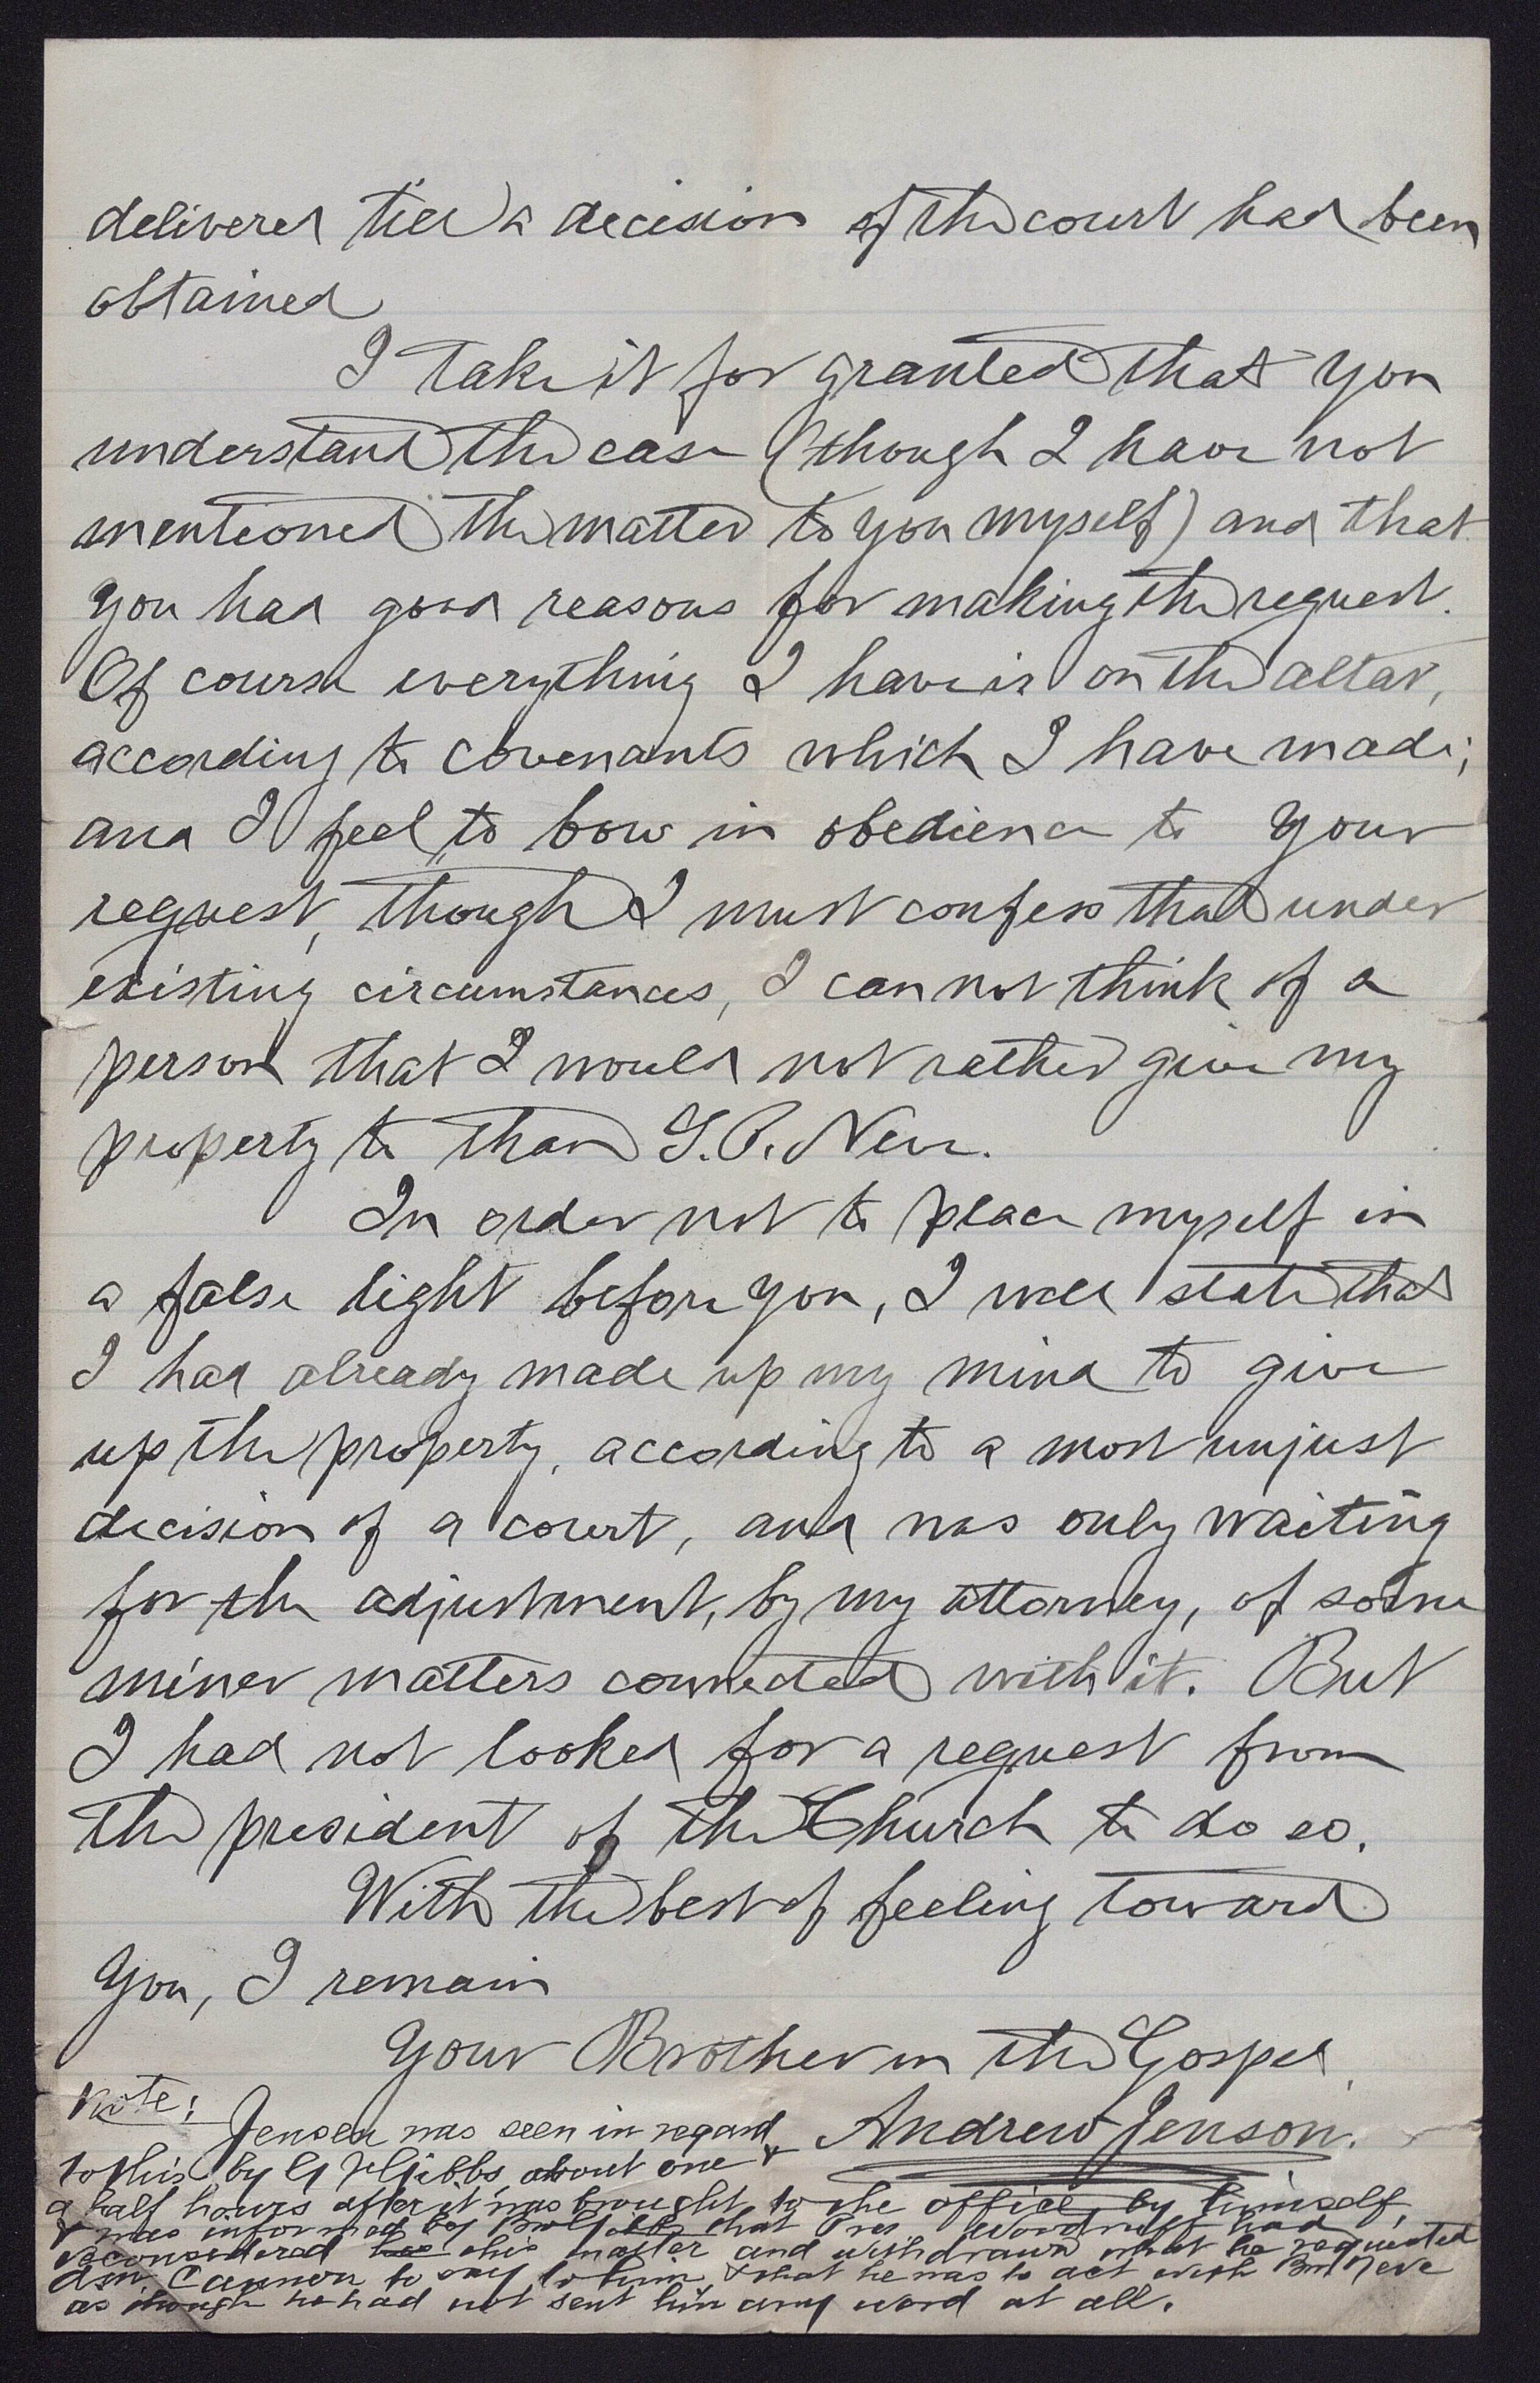 delivered till a decision of the court had been
obtained
I take it for granted that you
understand the case (though I have not
mentioned the matter to you myself) and that
you had good reasons for making the request.
Of course everything I have is on the altar,
according to covenants which I have made;
and I feel to bow in obedience to your
request, though I must confess that under
existing circumstances, I can not think of a
person that I would not rather give my
property to than Neve.
In order not to place myself in
a false light before you, I will state that
I had already made up my mind to give
up the property, according to a most unjust
decision of a court, and was only waiting
for the adjustment, by my attorney, of some
miner matters connected with it. But
I had not looked for a request from
the president of the Church to do so.
With the best of feeling toward
you, I remain
Your Brother in the Gospel,
Andrew Jenson.
Note:
Jensen was seen in regard
to this by Gibbs, about one &
a half hours after it was brought to the office, by himself,
& was informed by Bro Gibbs that Pres. Woodruff had
reconsidered this matter and withdrawn what he requested
Cannon to say to him, & that he was to act with Bro Neve
as though he had not sent him any word at all.